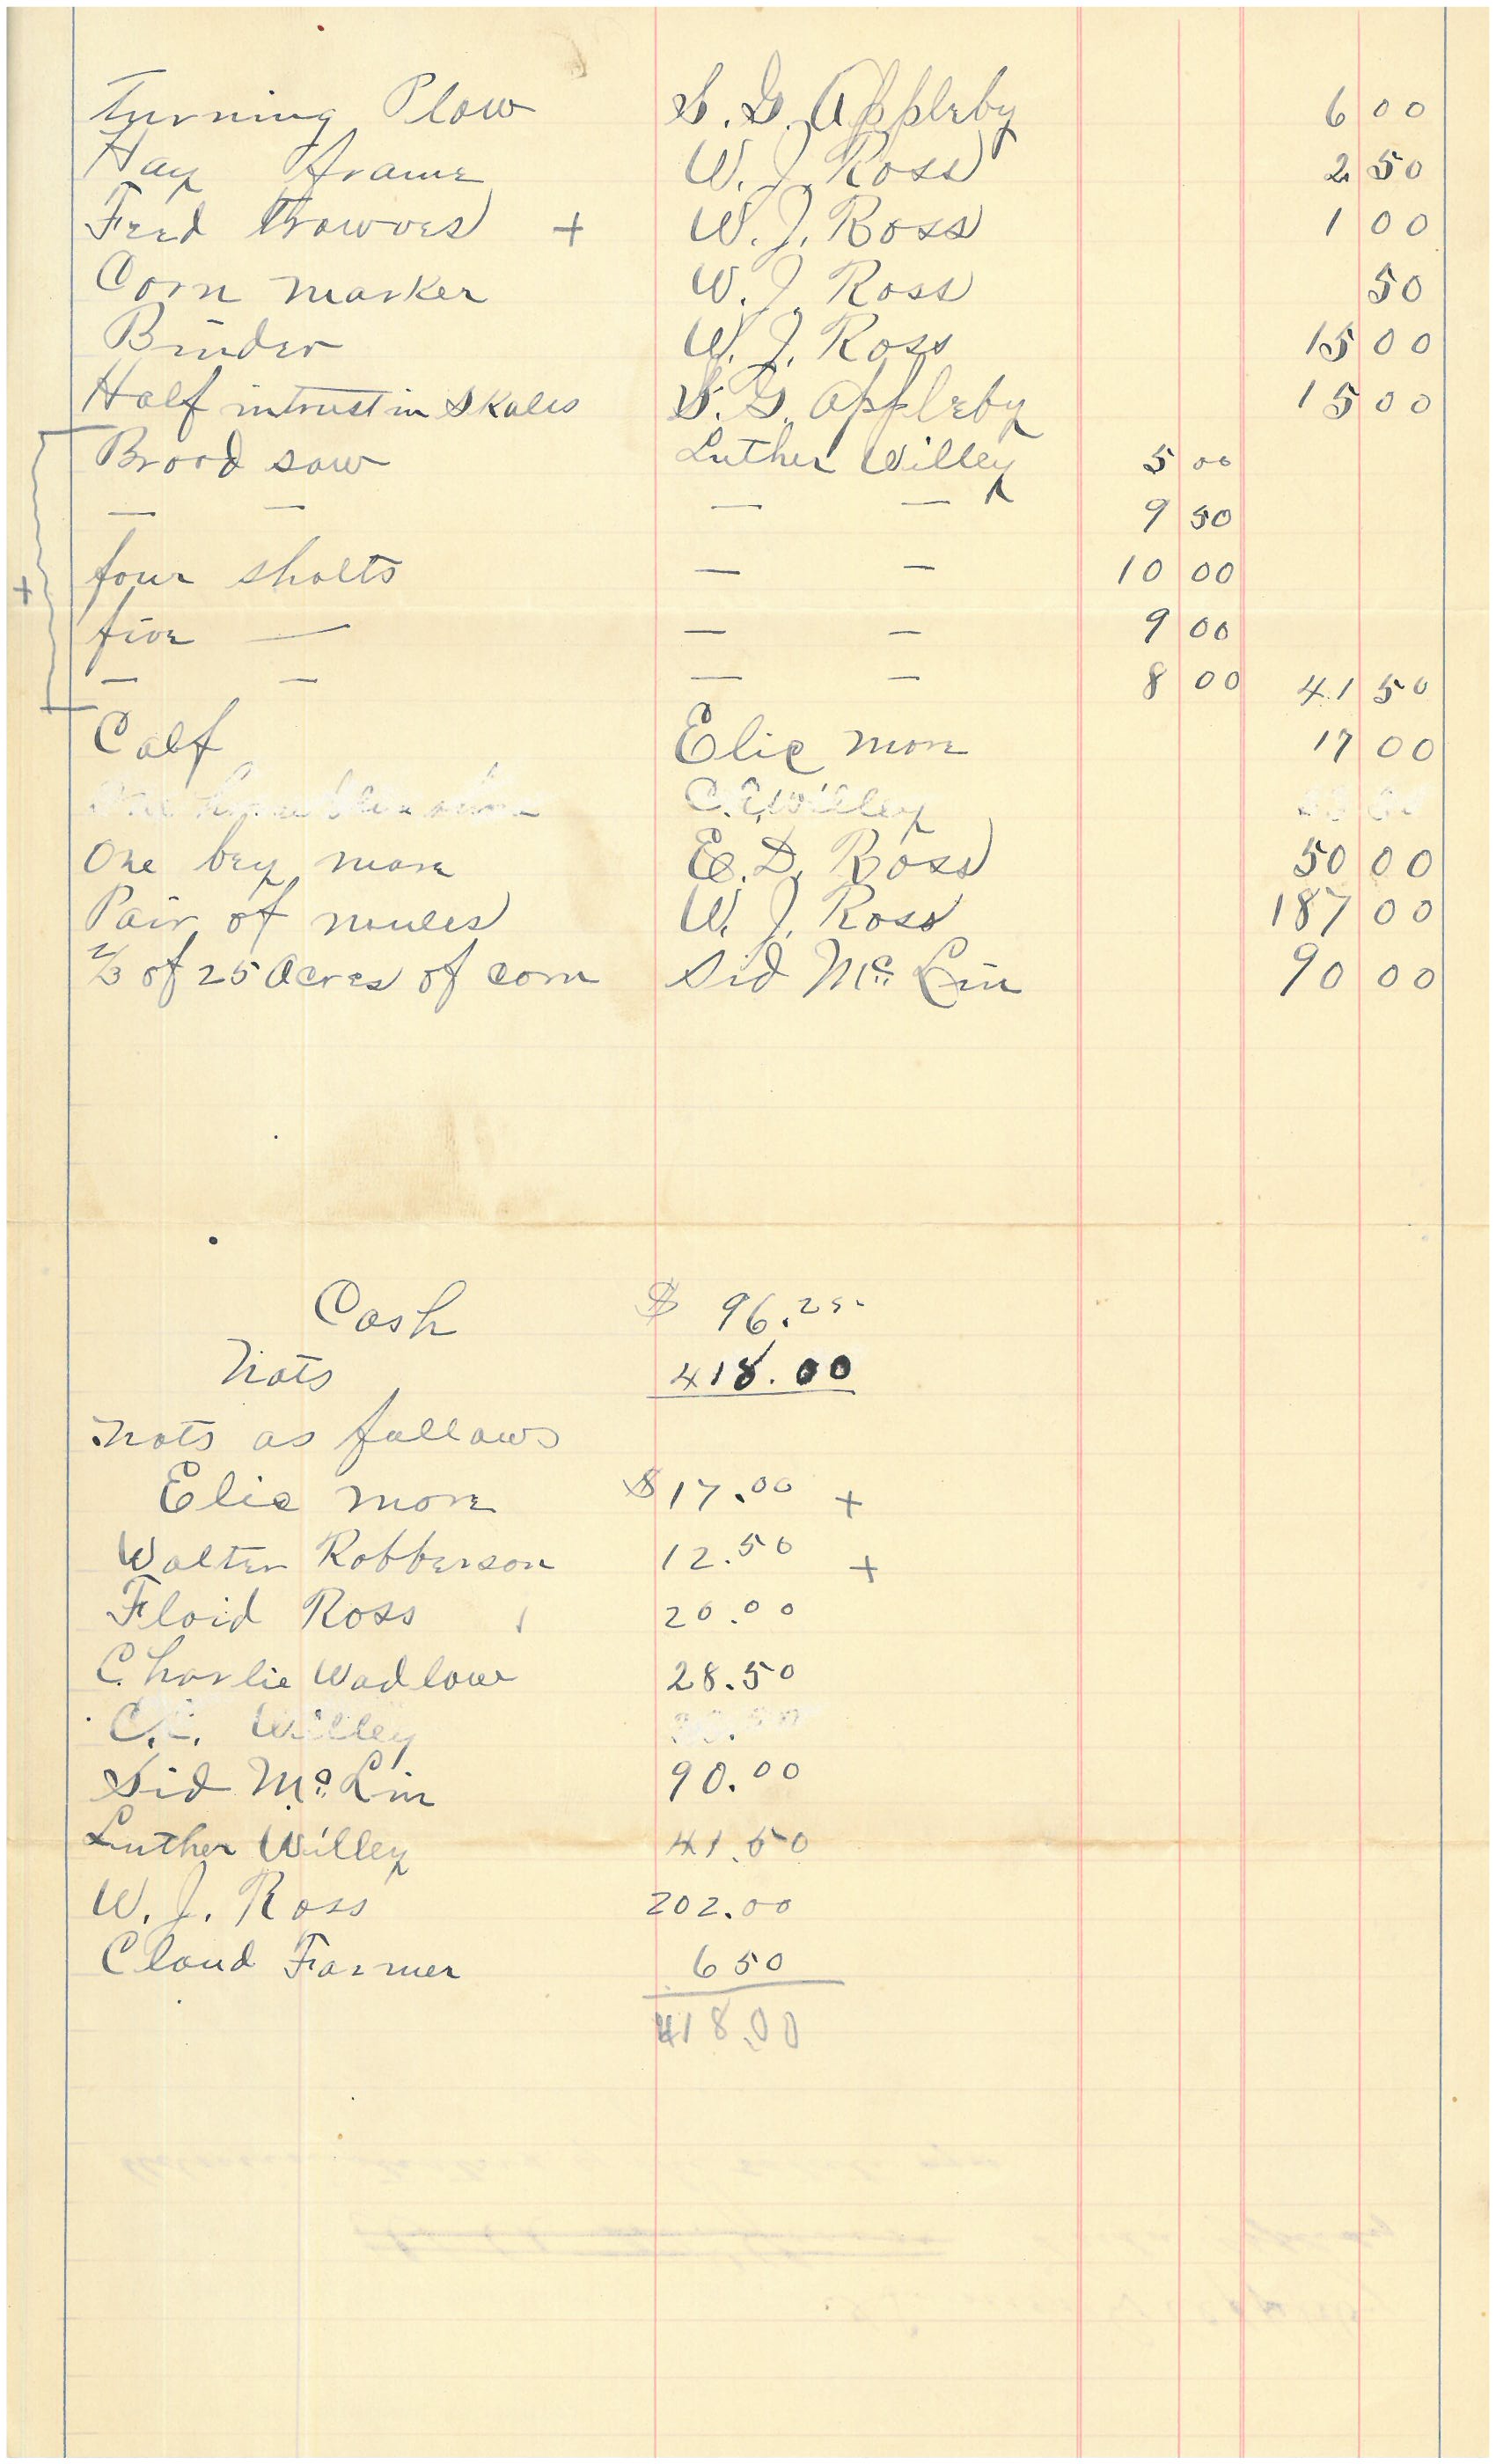 Turning Plow S. G. Appleby 6 00
Hay frame W. J. Ross 2 50
Feed throwves + W. J. Ross 1 00
Corn marker W. J. Ross 50
Binder W. J. Ross 15 00
Half intrust in Skales S. G. Appleby 15 00
Brood sow Luther Willey 5 00
— — — — 9 50
+ four sholts — — 10 00
five — — — 9 00
— — — — 8 00 41 50
Calf Elic more 17 00
C. E. Willey
One bey mare E. D. Ross 50 00
Pair of mules W. J. Ross 187 00
2/3 of 25 Acres of corn Sid Mc Lin 90 00
Cash $ 96.25
Nots 418.00
Nots as follows
Elic more $17.00 +
Walter Robberson 12.50 +
Floid Ross 20.00
Charlie Wadlow 28.50
C. E. Willey
Sid Mc Lin 90.00
Luther Willey 41.50
W. J. Ross 202.00
Cloud Farmer 6 50
418.00